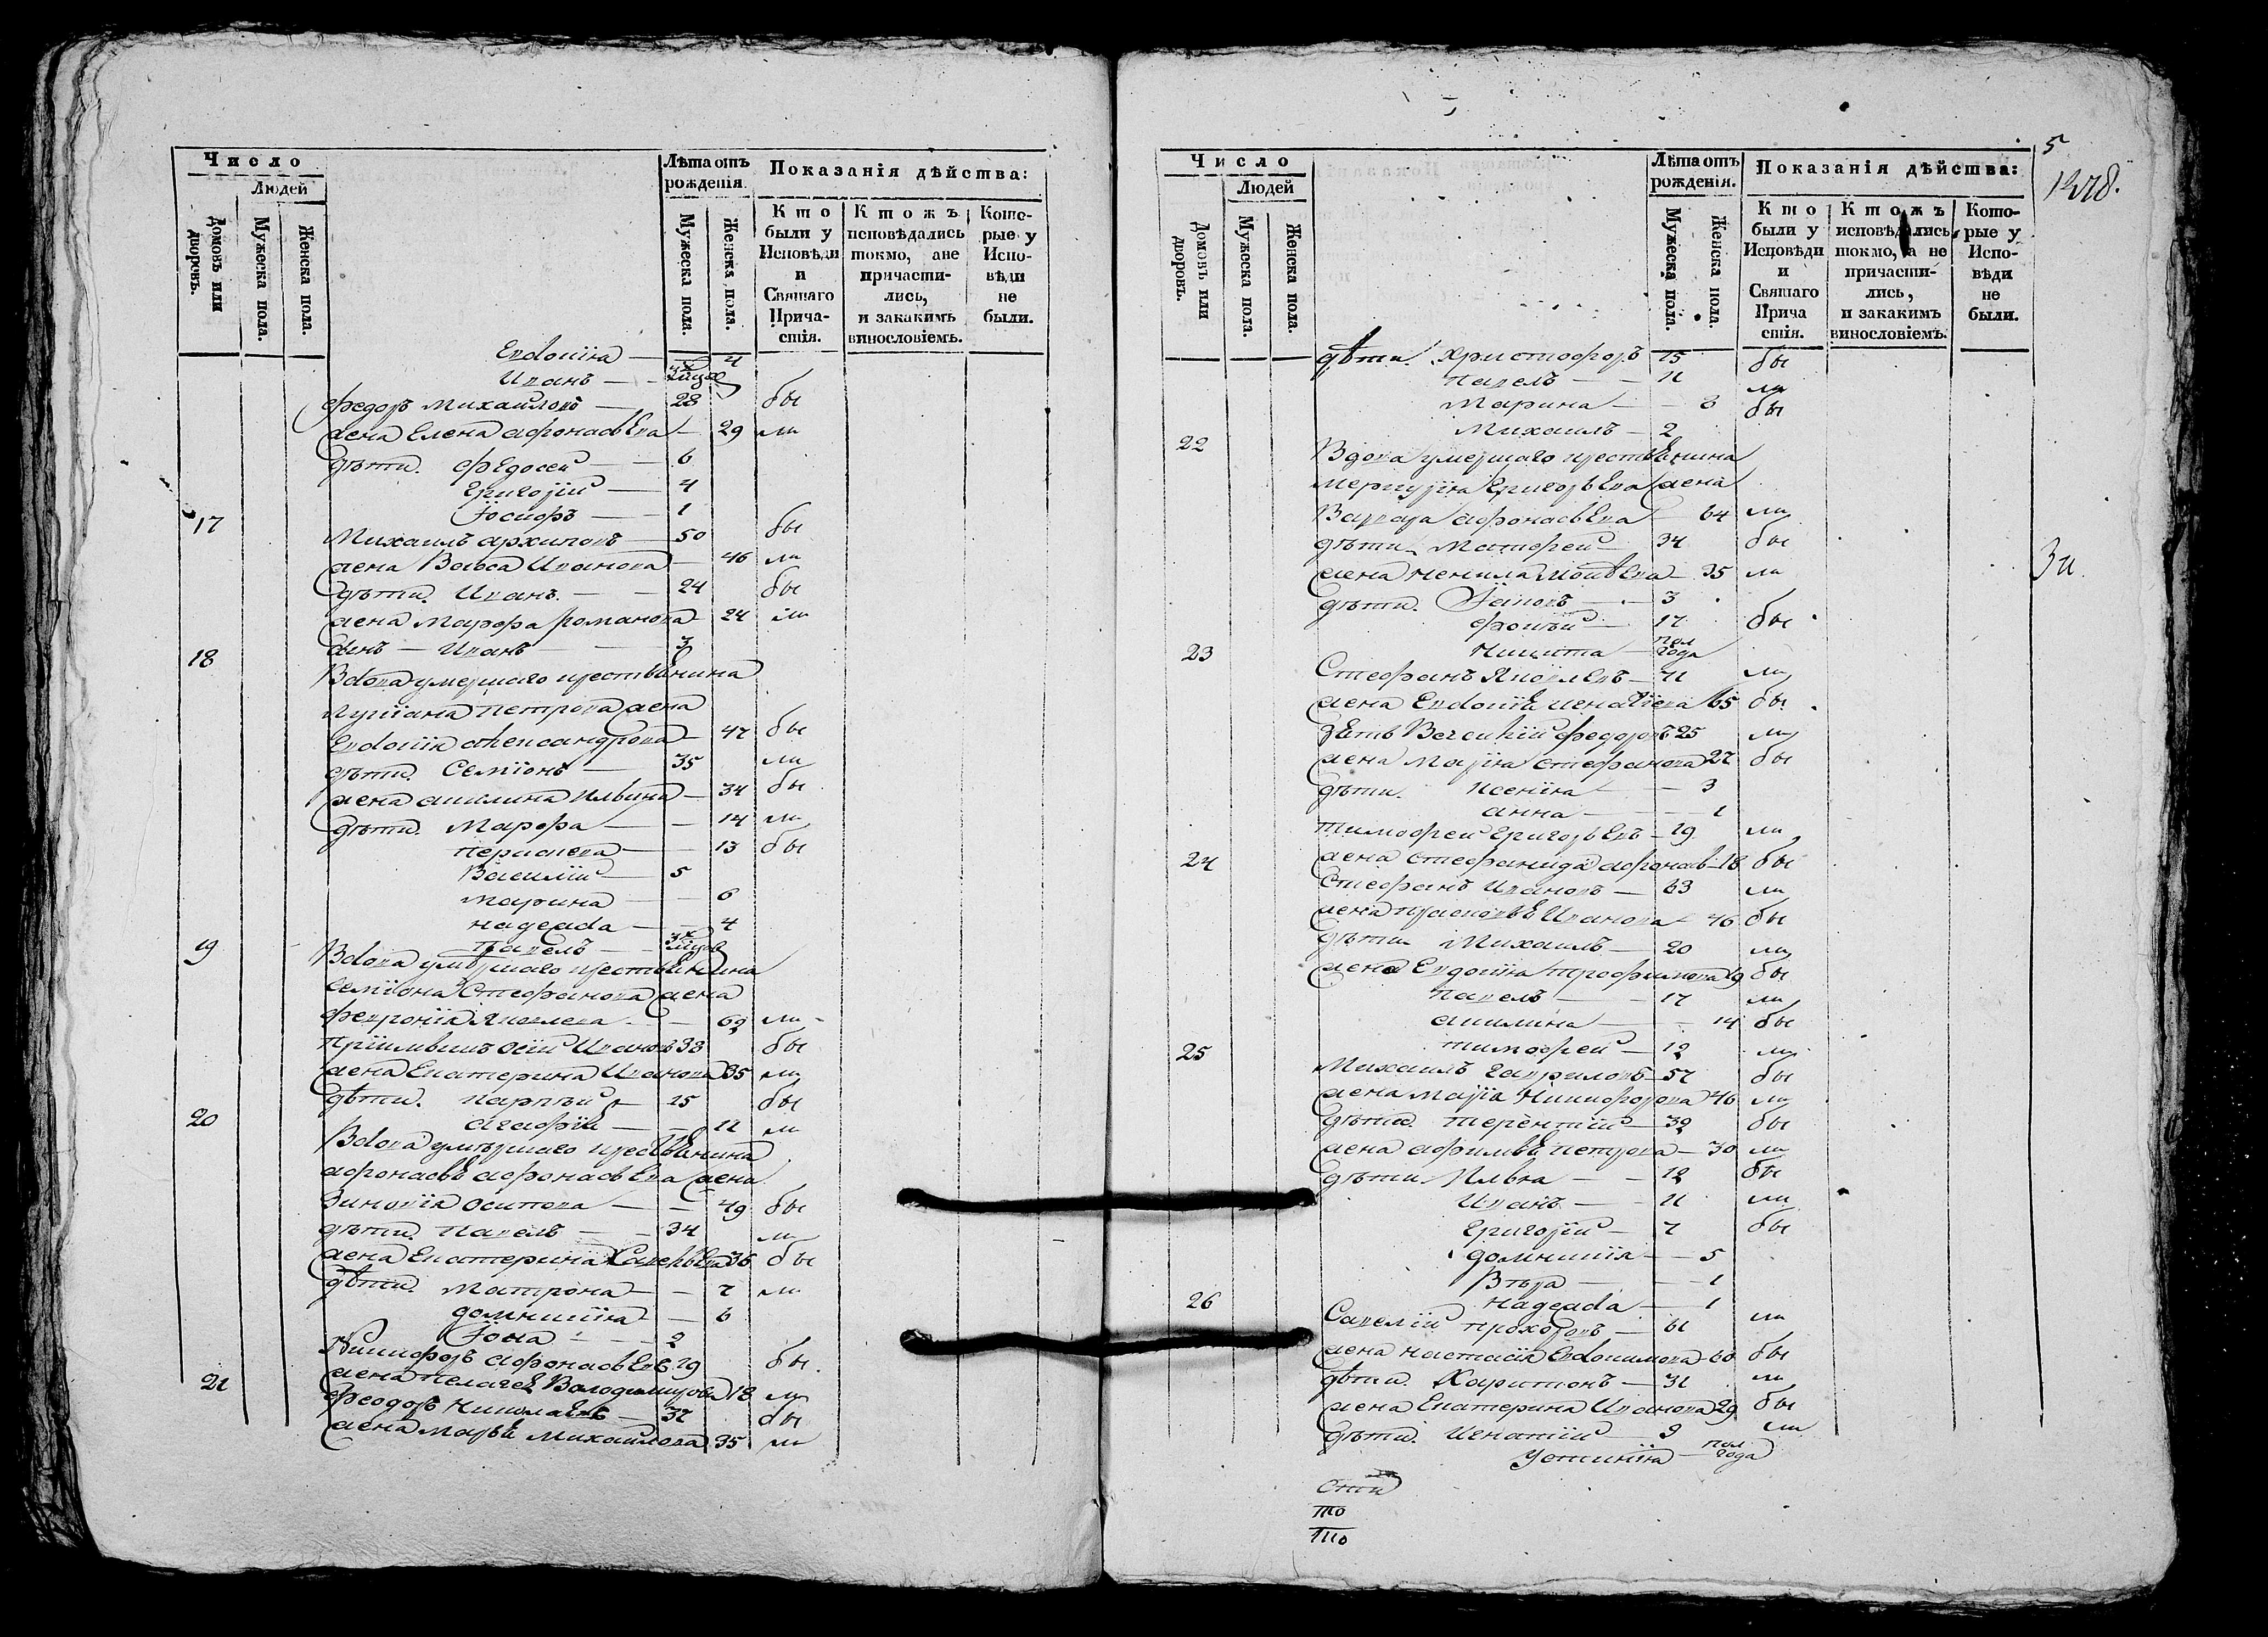 Число
Людей
Домовъ или дворовъ.
Мужеска пола.
Женска пола.
Лѣта отъ рожденія.
Мужеска пола.
Женска пола.
Показанія дѣйства:
Кто были у Исповѣди и Святаго Прича- стія.
Ктожъ исповѣдались токмо, а не причасти- лись, и закакимъ винословіемъ.
Кото- рые у Испо- вѣди не были.
Евдокіа 4
Иванъ 3х мцов
Федоръ Михаиловъ 28 бы
жена Елена афонасьева 29 ли
дѣти Федосеи 6
Григоріи 4
Іосифъ 1
17
Михаилъ архиповъ 50 бы
жена Васса Иванова 46 ли
дѣти Иванъ 24 бы
жена Марфа романова 24 ли
сынъ Иванъ 3
18
Вдова умершаго крестьянина
Лукіана Петрова жена
Евдокіа александрова 47 бы
дѣти Семіонъ 35 ли
жена акилина Ильина 34 бы
дѣти Марфа 14 ли
Параскева 13 бы
Василіи 5
Марина 6
надежда 4
Павелъ 3х мцов
19
Вдова умершаго крестьянина
Семіона Стефанова жена
Февроніа Яковлева 62 ли
Пріимышъ Осіи Ивановъ 33 бы
жена Екатерина Иванова 35 ли
дѣти Карпъ 15 бы
агафіа 11 ли
20
Вдова умершаго крестьянина
афонасья афонасьева жена
Зиновіа Осипова 49 бы
дѣти Павелъ 34 ли
жена Екатерина Савельева 36 бы
дѣти Матрона 7 ли
домникіа 6
Іона 2
Никифоръ афонасьевъ 29 бы
жена Пелагея Володимирова 18 ли
21
Феодоръ Николаевъ 37 бы
жена Марья Михаилова 35 ли
Число
Людей
Домовъ или дворовъ.
Мужеска пола.
Женска пола.
Лѣта отъ рожденія.
Мужеска пола.
Женска пола.
Показанія дѣйства:
Кто были у Исповѣди и Святаго Прича стія.
Ктожъ исповѣдались токмо, а не причасти- лись, и закакимъ винословіемъ.
Кото- рые у Испо- вѣди не были.
5
дѣти Христофоръ 15 бы
Павелъ 11 ли
Марина 8 бы
Михаилъ 2
22
Вдова умершаго крестьянина
Меркуріа Григорьева жена
Варвара афонасьева 64 ли
дѣти Матфеи 34 бы
жена Ненила Моисѣева 35 ли
дѣти Іаковъ 3
Фокіи 17 бы
Никита пол года
23
Стефанъ Яковлевъ 71 ли
жена Евдокіа игнатіева 65 бы
зять Василіи Федоровъ 25 ли
жена Маріа Стефанова 27 бы
дѣти Ксеніа 3
анна 1
Тимофеи Григорьевъ 19 ли
жена Стефанида афонась 18 бы
24
Стефанъ Ивановъ 63 ли
жена Прасковья Иванова 46 бы
дѣти Михаилъ 20 ли
жена Евдокіа трофимова 19 бы
Павелъ 17 ли
акилина 14 бы
тимофеи 12 ли
25
Михаилъ Гавриловъ 57 бы
жена Маріа Никифорова 46 ли
дѣти Терентіи 32 бы
жена афимья Петрова 30 ли
дѣти Илья 12 бы
Иванъ 11 ли
Григоріи 7 бы
домникіа 5
Вѣра 1
надежда 1
26
Савеліи Прохоровъ 61 ли
жена настасіа Евдокимова 60 бы
дѣти Харитонъ 31 ли
жена Екатерина Иванова 29 бы
дѣти Игнатіи 9 ли
Устиніа пол года